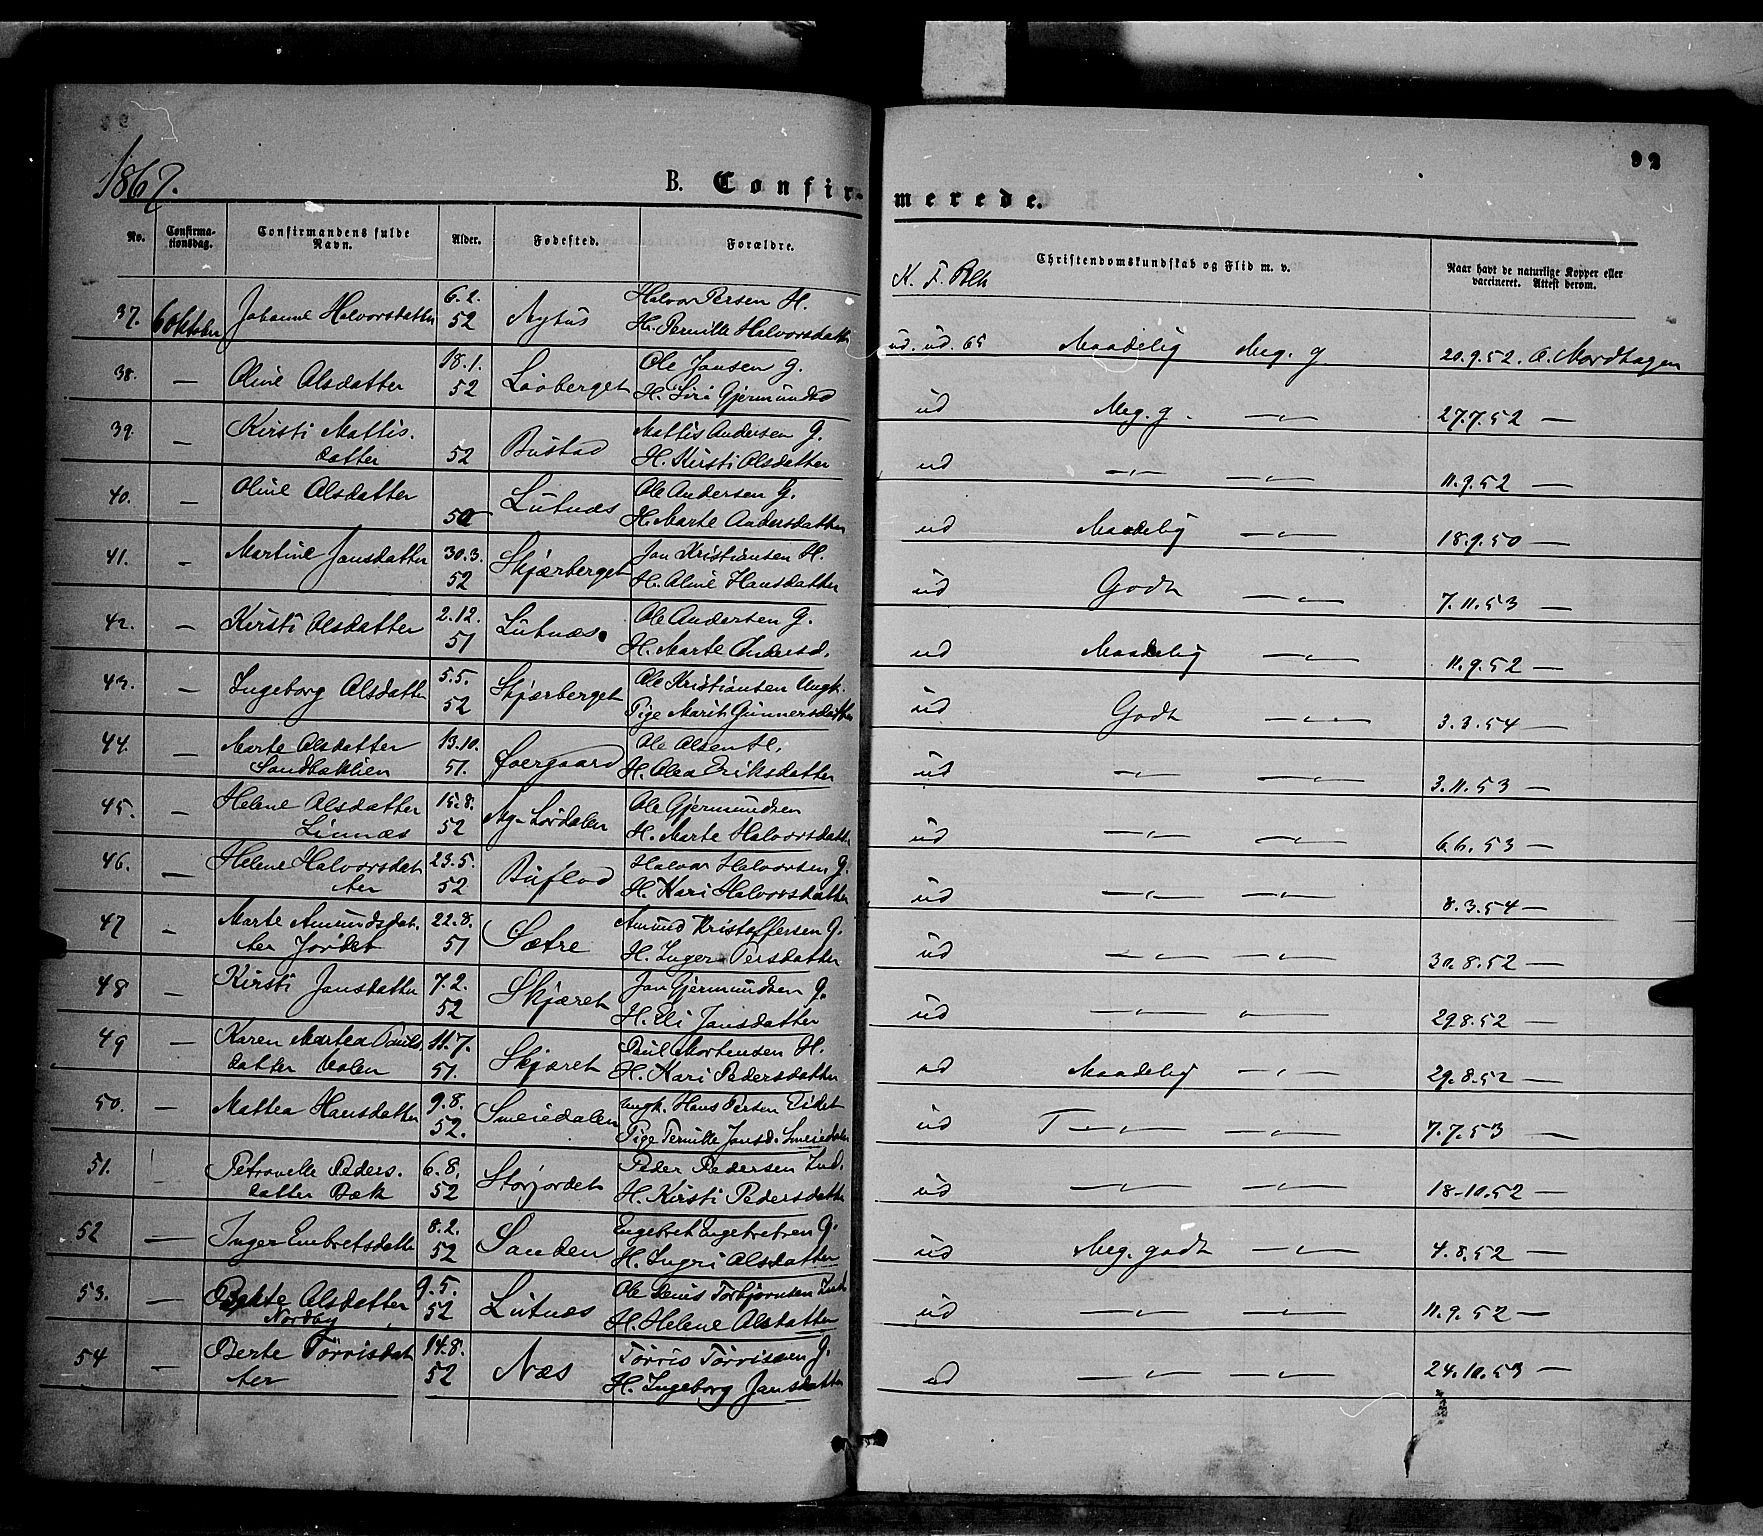 92
1867.
B. Confir-
merede.
No.
Confirma-
tionsdag.
Confirmandens fulde
Navn.
Alder.
Fødested.
Forældre.
Christendomskundskab og Flid m. v.
Naar havt de naturlige Kopper eller
vaccineret. Attest derom.
K. F.
37. 6 Oktober Johanne Halvorsdatter 6.2. 52 Nyhus Halvor Persen H.
H. Pernille Halvorsdatter
ud. ud. 65 Maadelig Meg. g 20.9.52. A. Mordhagen
38. — Oline Olsdatter 18.1. 52 Løvberget Ole Jansen G.
H. Siri Gjermundsd
ud Meg. g. —„— 27.7.52 —
39. — Kirsti Mattis-
datter 52 Bustad Mattis Andersen G.
H. Kirsti Olsdatter
ud —„— —„— 11.9.52 —
40. — Oline Olsdatter 50 Lutnæs Ole Andersen G.
H. Marte Andersdatter
ud Maadelig —„— 18.9.50 —
41. — Martine Jansdatter 30.3. 52 Skjærberget Jan Kristiansen H.
H. Oline Hansdatter
ud Godt —„— 7.11.53 —
42. — Kirsti Olsdatter 2.12. 51 Lutnæs Ole Andersen G.
H. Marte Andersd.
ud Maadelig —„— 11.9.52 —
43. — Ingeborg Olsdatter 5.5. 52 Skjærberget Ole Kristiansen Ungk.
Pige Marit Gunnersdatter
ud Godt —„— 3.3.54 —
44. — Marte Olsdatter
Sandbæklien 13.10. 51. Øvergaard Ole Olsen H.
H. Olea Eriksdatter
ud —„— —„— 3.11.53 —
45. — Helene Olsdatter
Linnæs 15.8. 52 Ny-Lørdalen Ole Gjermundsen
H. Marte Halvorsdatter
ud —„— —„— 6.6.53 —
46. — Helene Halvorsdat-
ter 23.5. 52 Buflod Halvor Halvorsen G.
H. Kari Halvorsdatter
ud —„— —„— 8.3.54 —
47 — Marte Amundsdat-
ter Jordet 22.8. 51 Sætre Amund Kristoffersen G.
H. Inger Persdatter
ud —„— —„— 30.8.52 —
48 — Kirsti Jansdatter 7.2. 52 Skjæret Jan Gjermundsen G.
H. Eli Jansdatter
ud —„— —„— 29.8.52 —
49 — Karen Martea Pauls-
datter 11.7. 51. Skjæret Paul Mortensen H.
H. Kari Pedersdatter
ud Maadelig —„— 29.8.52 —
50. — Mattea Hansdatter 9.8. 52. Smeiedalen Ungk. Hans Persen Eidet
Pige Pernille Jansd. Smeiedalen
ud T —„— —„— 7.7.53 —
51. Petronelle Peders-
datter Bæk 6.8. 52 Storjordet Peder Pedersen Ind.
H. Kirsti Pedersdatter
ud —„— —„— 18.10.52 —
52 — Inger Embretsdatter 8.2. 52 Sanden Engebret Engebretsen G.
H. Ingri Olsdatter
ud Meg. godt —„— 4.8.52 —
53. — Olsdatter
Nordby 9.5. 52 Lutnæs Ole Torbjørnsen Ind.
H. Helene Olsdatter
ud —„— —„— 11.9.52 —
54 — Berte Tørrisdat-
ter 14.8. 52 Næs Tørris Tørrisen G.
H. Ingeborg Jansdatter
ud —„— —„— 24.10.53 —